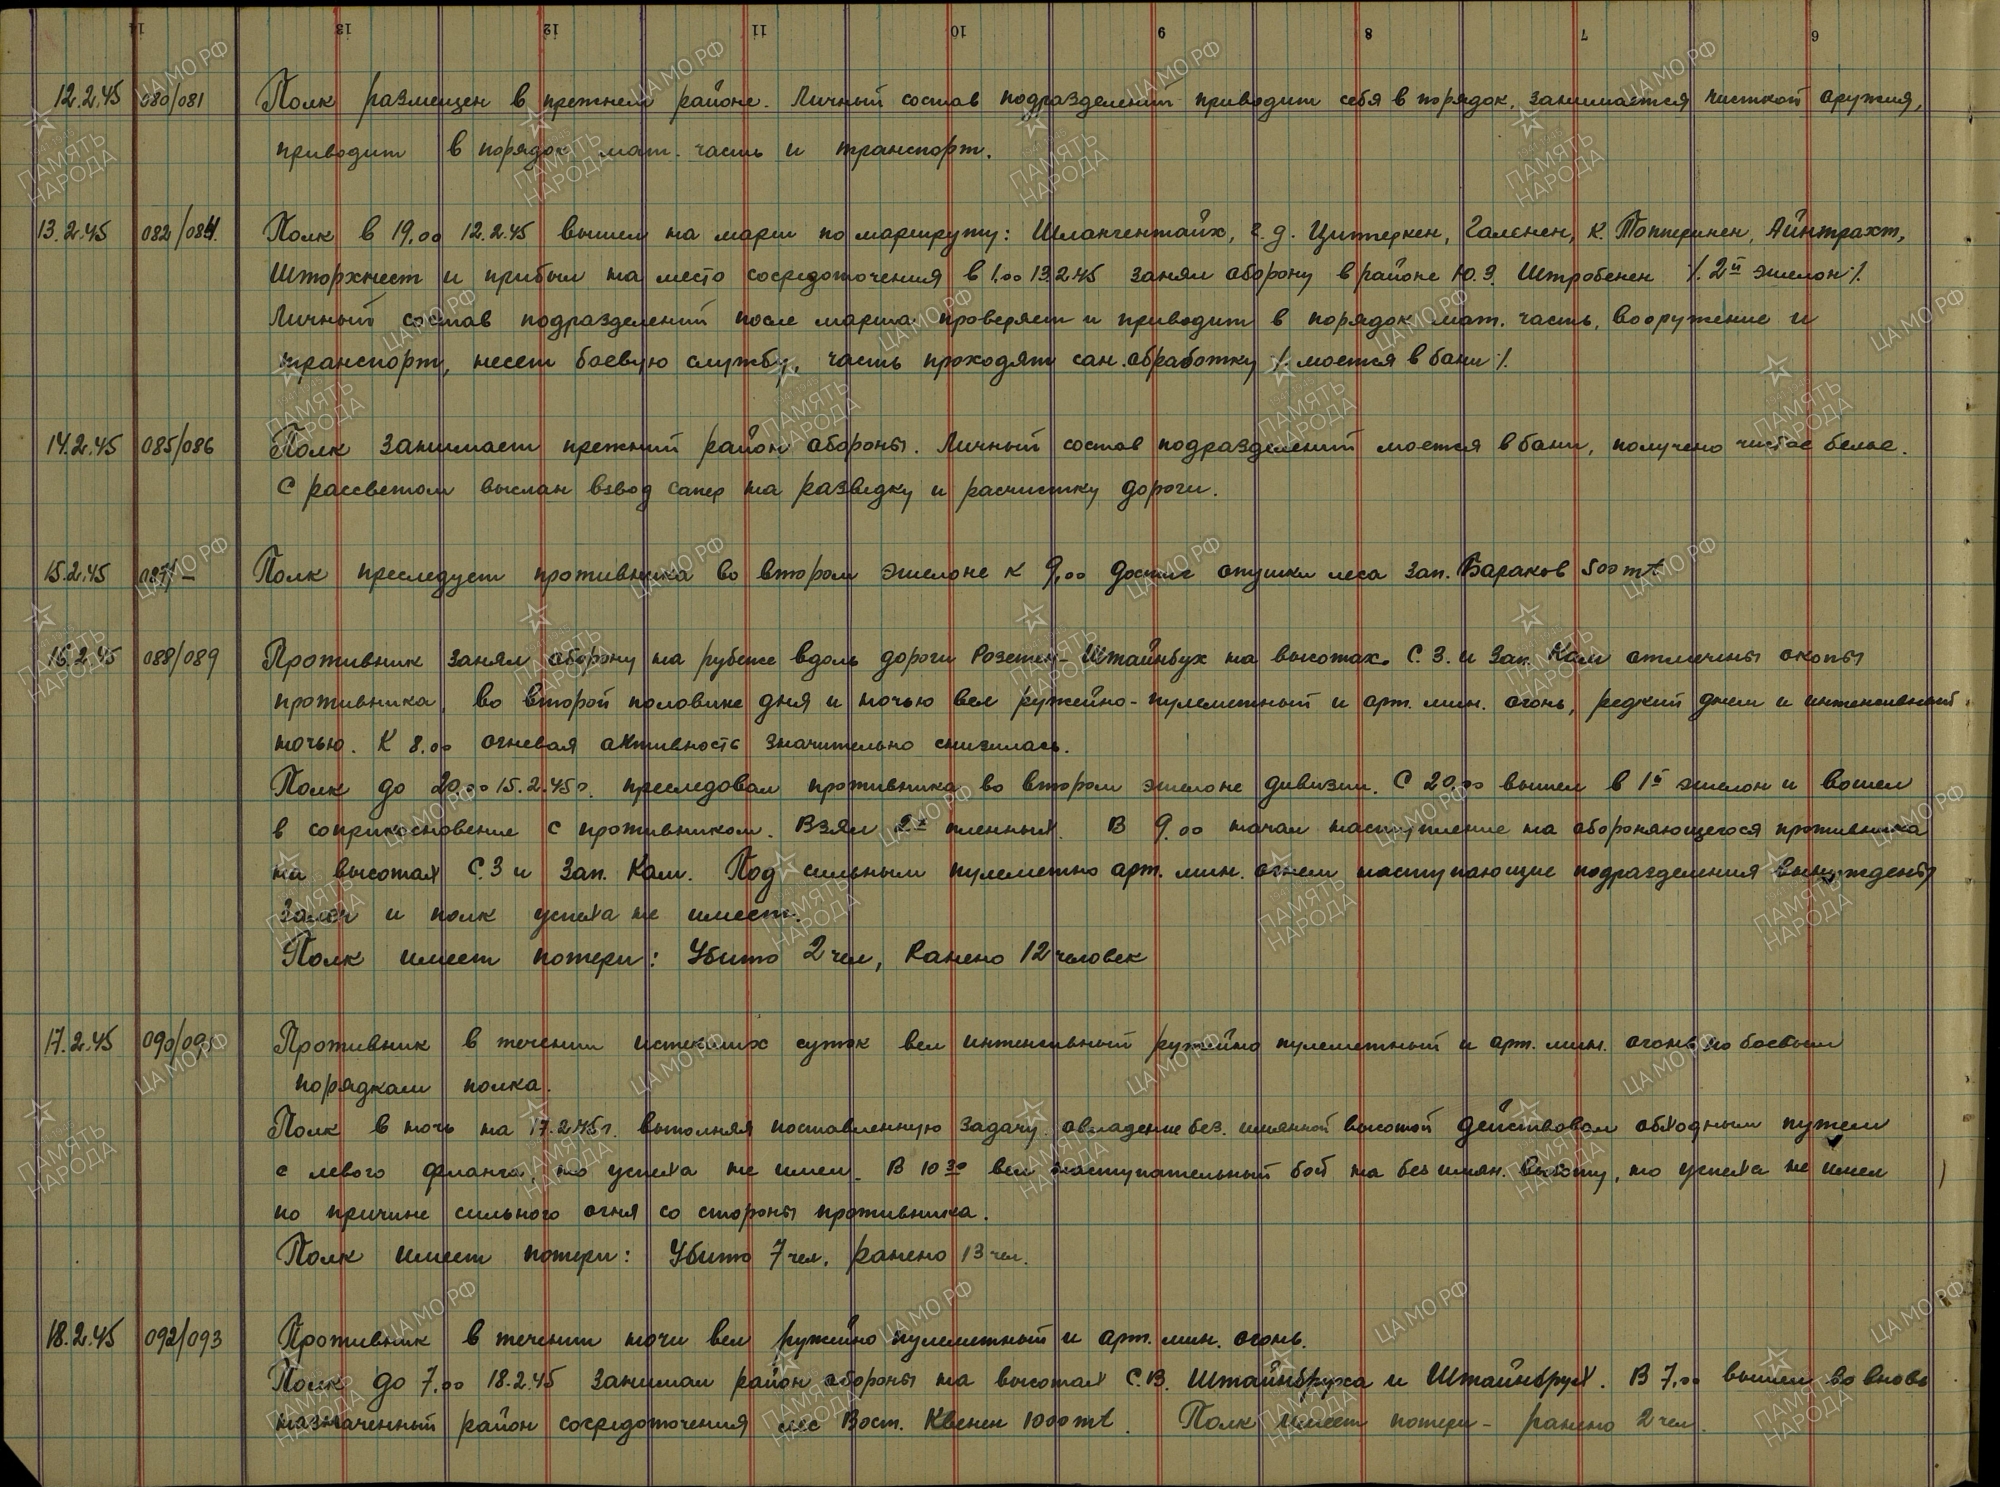 14 13 12 11 10 9 8 7 6
12.2.45 080/081 Полк размещен в прежнем районе. Личный состав подразделений приводит себя в порядок, занимается чисткой оружия,
приводит в порядок мат. часть и транспорт.
13.2.45 082/084 Полк в 19.00 12.2.45 вышел на марш по маршруту: Шлангентайх, г.д. Циттеркен, Галенен, К. Топперинен, Айнтрахт,
Шторхнест и прибыл на место сосредоточения в 1.00 13.2.45 занял оборону в районе Ю.З. Штробенен /. 2й эшелон ./
Личный состав подразделений после марша проверяет и приводит в порядок мат. часть, вооружение и
транспорт, несет боевую службу, часть проходят сан. обработку /. моется в бани ./
14.2.45 085/086 Полк занимает прежний район обороны. Личный состав подразделений моется в бани, получено чистое белье.
С рассветом выслан взвод сапер на разведку и расчистку дороги.
15.2.45 087/– Полк преследует противника во втором эшелоне к 9.00 достиг опушки леса зап. Бараков 500 mt
16.2.45 088/089 Противник занял оборону на рубеже вдоль дороги Розетен- Штайнбух на высотах. С.З. и Зап. Кам отмечены окопы
противника, во второй половине дня и ночью вел ружейно-пулеметный и арт. мин. огонь, редкий днем и интенсивный
ночью. К 8.00 огневая активность значительно снизилась.
Полк до 20.00 15.2.45г. преследовал противника во втором эшелоне дивизии. С 20.00 вышел в 1й эшелон и вошел
в соприкосновение с противником. Взял 2х пленных. В 9.00 начал наступление на обороняющегося противника
на высотах С.З и Зап. Кам. Под сильным пулеметно арт. мин. огнем наступающие подразделения вынуждены
залеч и полк успеха не имеет.
Полк имеет потери: Убито 2 чел, Ранено 12 человек
17.2.45 090/091 Противник в течении истекших суток вел интенсивный ружейно пулеметный и арт. мин. огонь по боевым
порядкам полка.
Полк в ночь на 17.2.45г. выполняя поставленную задачу овладение без. имянной высотой действовал обходным путем
с левого фланга, но успеха не имел. В 10 30 вел наступательный бой на без имян. высоту, но успеха не имел
по причине сильного огня со стороны противника.
Полк имеет потери: Убито 7 чел, ранено 13 чел.
18.2.45 092/093 Противник в течении ночи вел ружейно пулеметный и арт. мин. огонь.
Полк до 7.00 18.2.45 занимал район обороны на высотах С.В. Штайнбруха и Штайнбрух. В 7.00 вышел во вновь
назначенный район сосредоточения лес Вост. Квенен 1000 mt. Полк имеет потери - ранено 2 чел.
ЦА МО РФ
ПАМЯТЬ НАРОДА